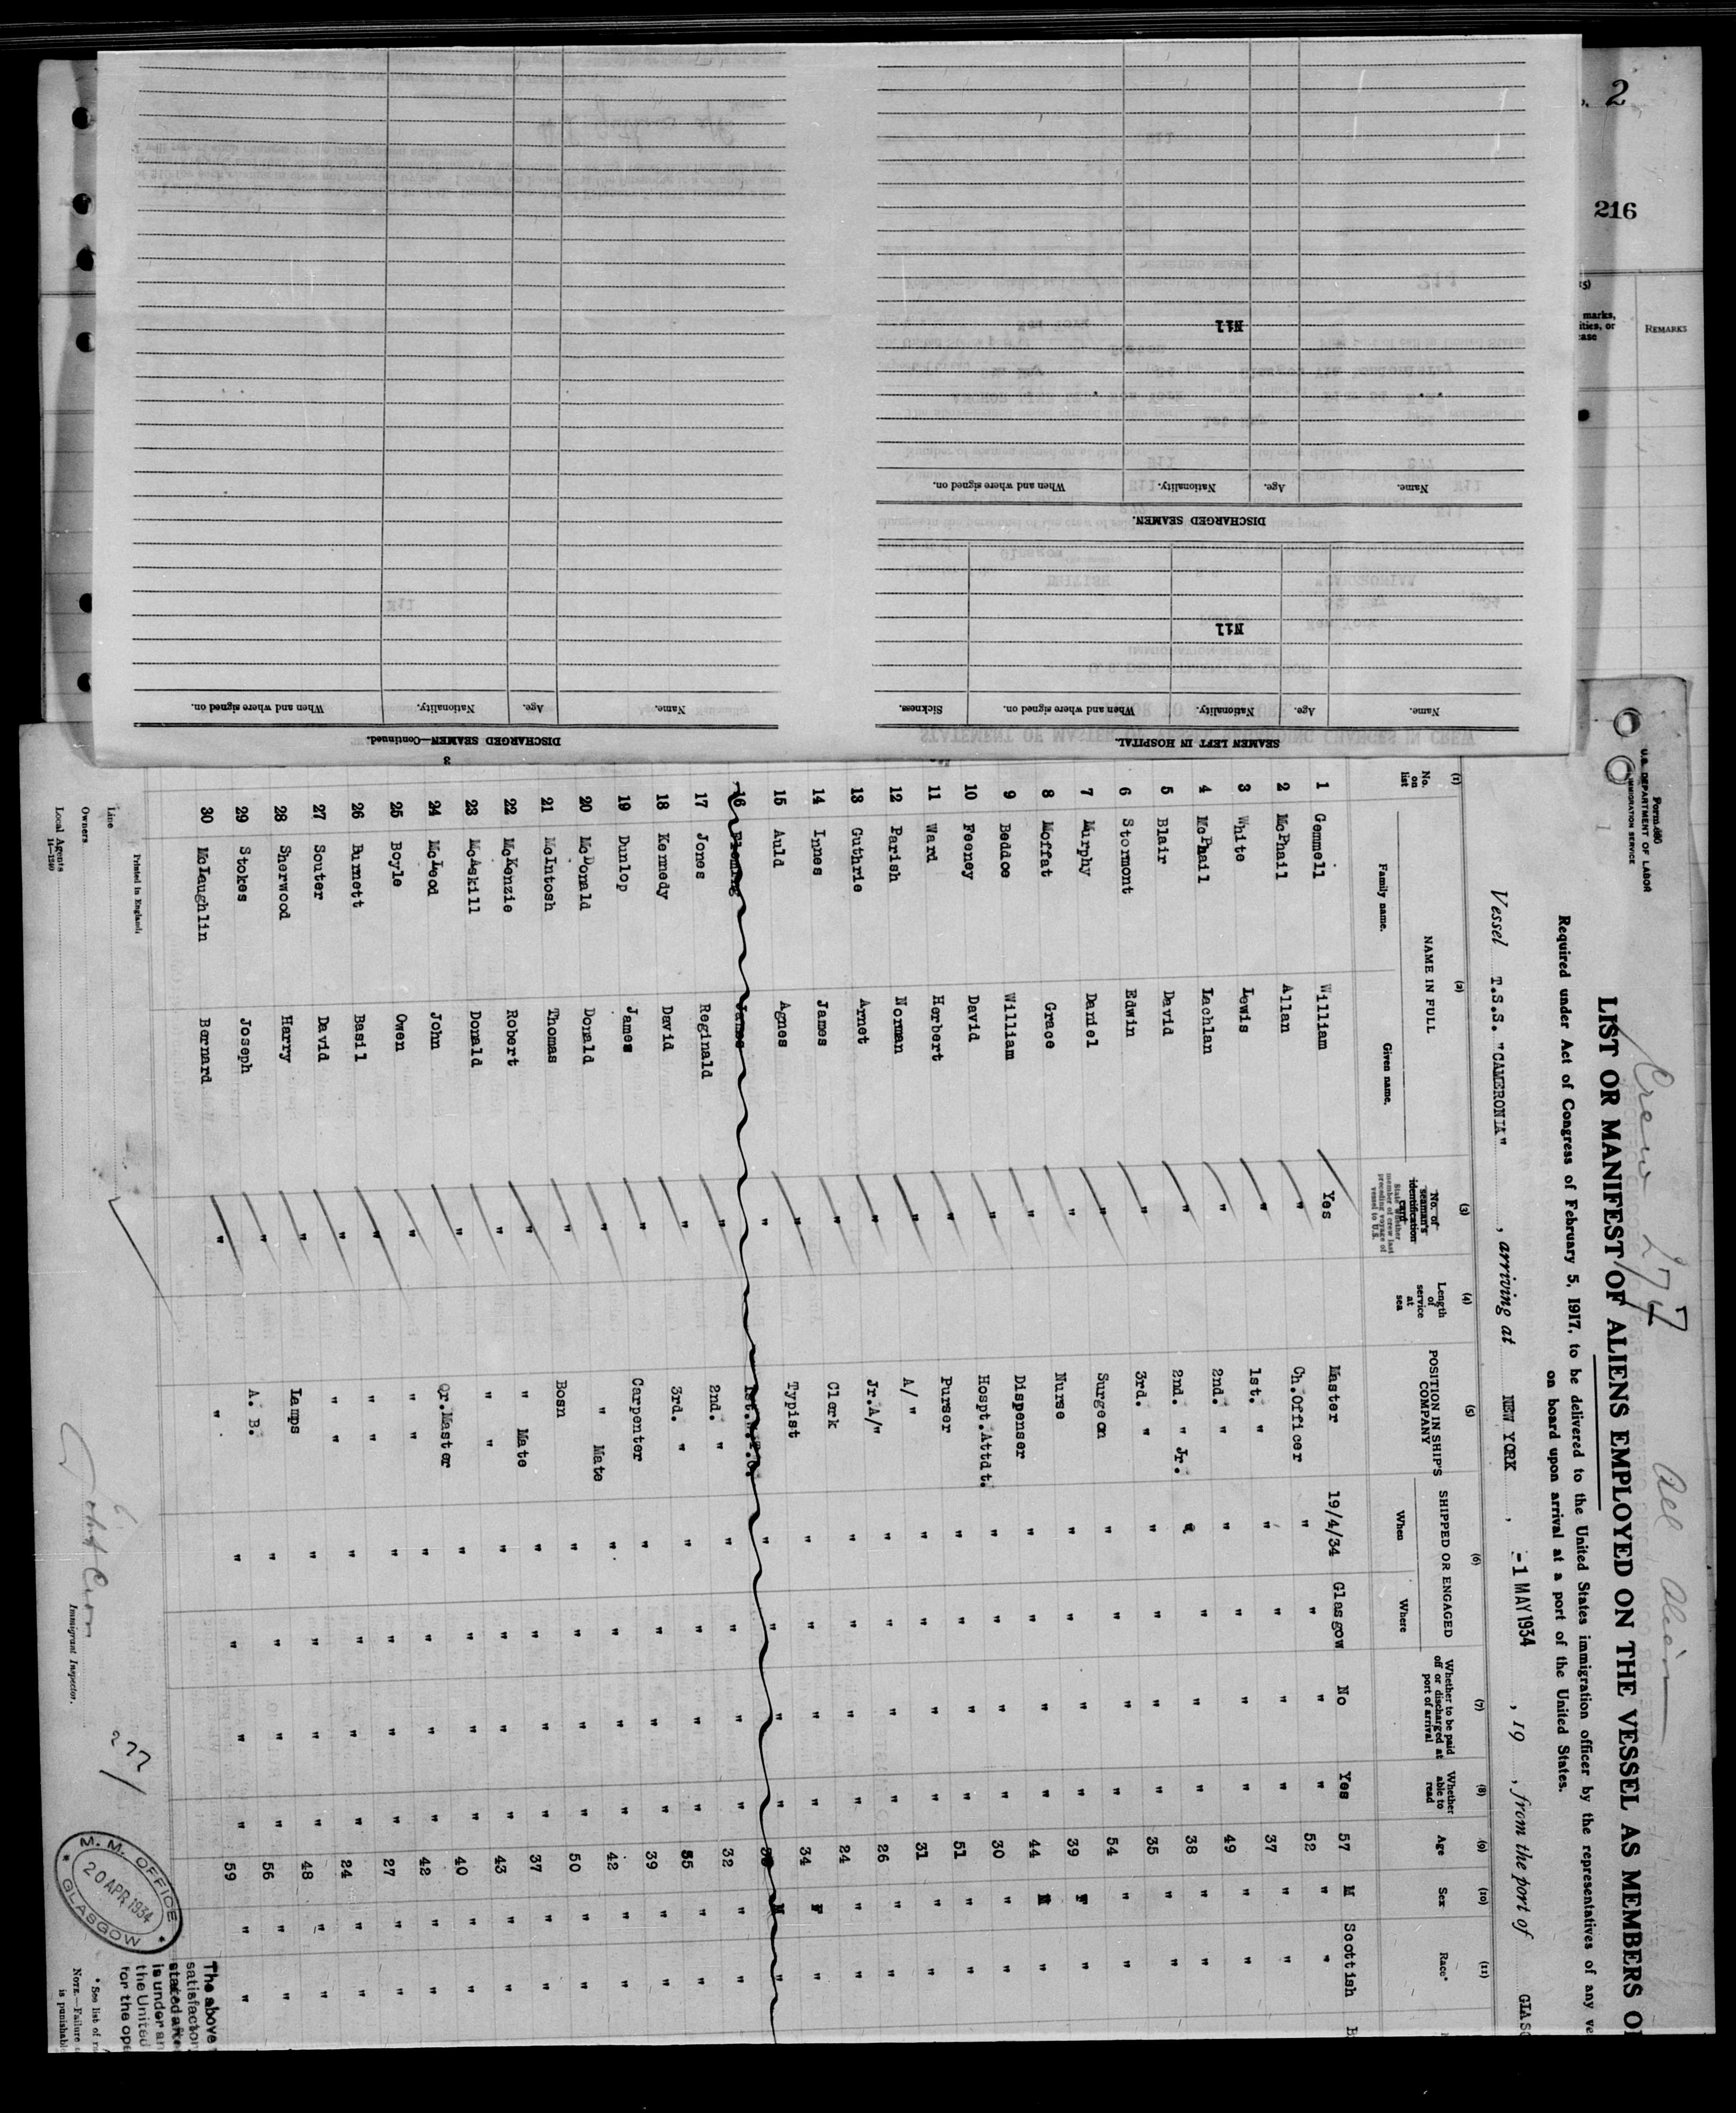 2
216
marks,
ities, or
ase
REMARKS
SEAMEN LEFT IN HOSPITAL.
Name. Age. Nationality. When and where signed on. Sickness.
Nil
DISCHARGED SEAMEN.
Name. Age. Nationality. When and where signed on.
Nil
DISCHARGED SEAMEN—Continued.
Name. Age. Nationality. When and where signed on.
3
Form 680
U.S. DEPARTMENT OF LABOR
IMMIGRATION SERVICE
Crew 277
All Alien
LIST OR MANIFEST OF ALIENS EMPLOYED ON THE VESSEL AS MEMBERS O
Required under Act of Congress of February 5, 1917, to be delivered to the United States immigration officer by the representatives of any ve
on board upon arrival at a port of the United States.
Vessel T.S.S. "CAMERONIA" , arriving at NEW YORK , -1 MAY 1934 , 19 , from the port of GLASG
(1) (2) (3) (4) (5) (6) (7) (8) (9) (10) (11)
No. on list NAME IN FULL Family name. Given name. No. of seaman's identification card State whether member of crew last preceding voyage of vessel to U.S. Length of service at sea POSITION IN SHIP'S COMPANY SHIPPED OR ENGAGED When Where Whether to be paid off or discharged at port of arrival Whether able to read Age Sex Race*
1 Gemmell William Yes Master 19/4/34 Glasgow No Yes 57 M Scottish B
2 McPhail Allan " Ch.Officer " " " " 52 " "
3 White Lewis " 1st. " " " " " 37 " "
4 McPhail Lachlan " 2nd. " " " " " 49 " "
5 Blair David " 2nd. " Jr. " " " " 38 " "
6 Stormont Edwin " 3rd. " " " " " 35 " "
7 Murphy Daniel " Surgeon " " " " 54 " "
8 Moffat Grace " Nurse " " " " 39 F "
9 Beddoe William " Dispenser " " " " 44 M "
10 Feeney David " Hospt.Attdt. " " " " 30 " "
11 Ward Herbert " Purser " " " " 51 " "
12 Parish Norman " A/ " " " " " 31 " "
13 Guthrie Arnet " Jr.A/" " " " " 26 " "
14 Innes James " Clerk " " " " 24 " "
15 Auld Agnes " Typist " " " " 34 F "
16 Fleming James " 1st.W.T.O. " " " " M "
17 Jones Reginald " 2nd. " " " " " 32 " "
18 Kennedy David " 3rd. " " " " " 35 " "
19 Dunlop James " Carpenter " " " " 39 " "
20 McDonald Donald " " Mate " " " " 42 " "
21 McIntosh Thomas " Bosn " " " " 50 " "
22 McKenzie Robert " " Mate " " " " 37 " "
23 McAskill Donald " " " " " " " 43 " "
24 McLeod John " Qr.Master " " " " 40 " "
25 Boyle Owen " " " " " " " 42 " "
26 Burnett Basil " " " " " " " 27 " "
27 Souter David " " " " " " " 24 " "
28 Sherwood Harry " Lamps " " " " 48 " "
29 Stokes Joseph " A. B. " " " " 56 " "
30 McLaughlin Bernard " " " " " " 59 " "
Printed in England
Line
Owners
Local Agents
14—1240
Immigrant Inspector.
277
M. M. OFFICE
20 APR 1934
GLASGOW
The above
satisfactor
stated afte
is under an
the United
for the ope
*See list of r
NOTE.—Failure
is punishabl